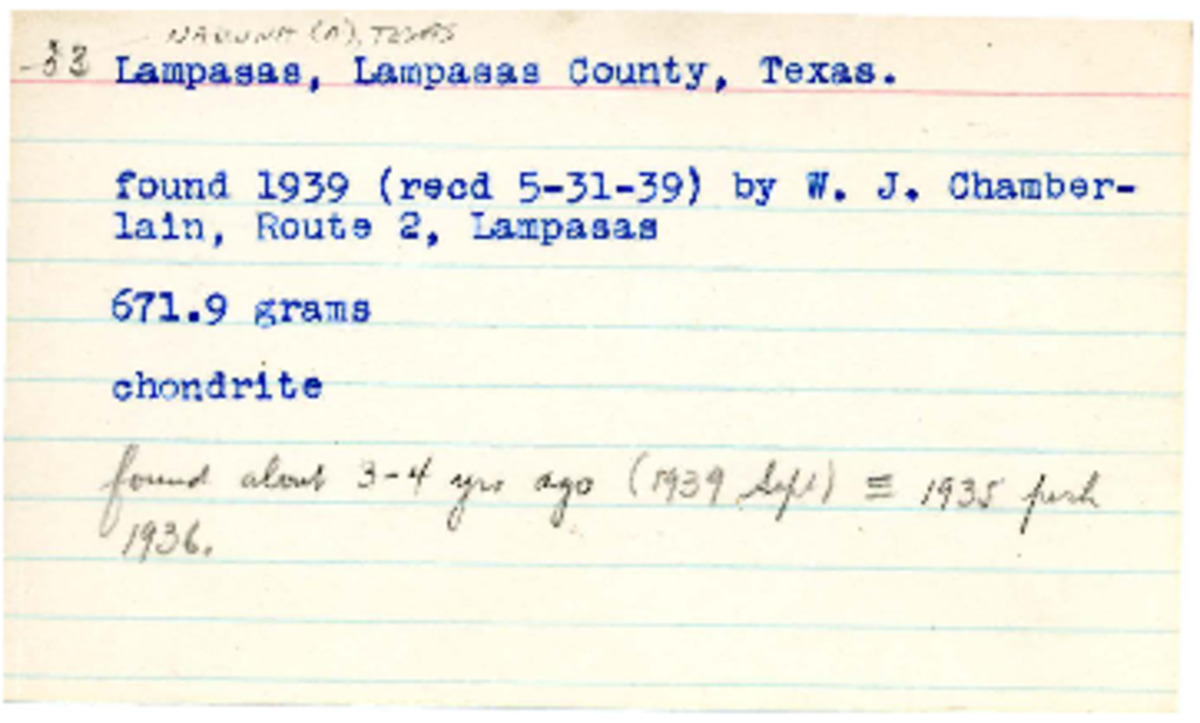 NARUNA (A), TEXAS
33 Lampasas, Lampasas County, Texas.
found 1939 (recd 5-31-39) by W. J. Chamber-
lain, Route 2, Lampasas
671.9 grams
chondrite
found about 3-4 yrs ago (1939 Sept) ≡ 1935 perh
1936.